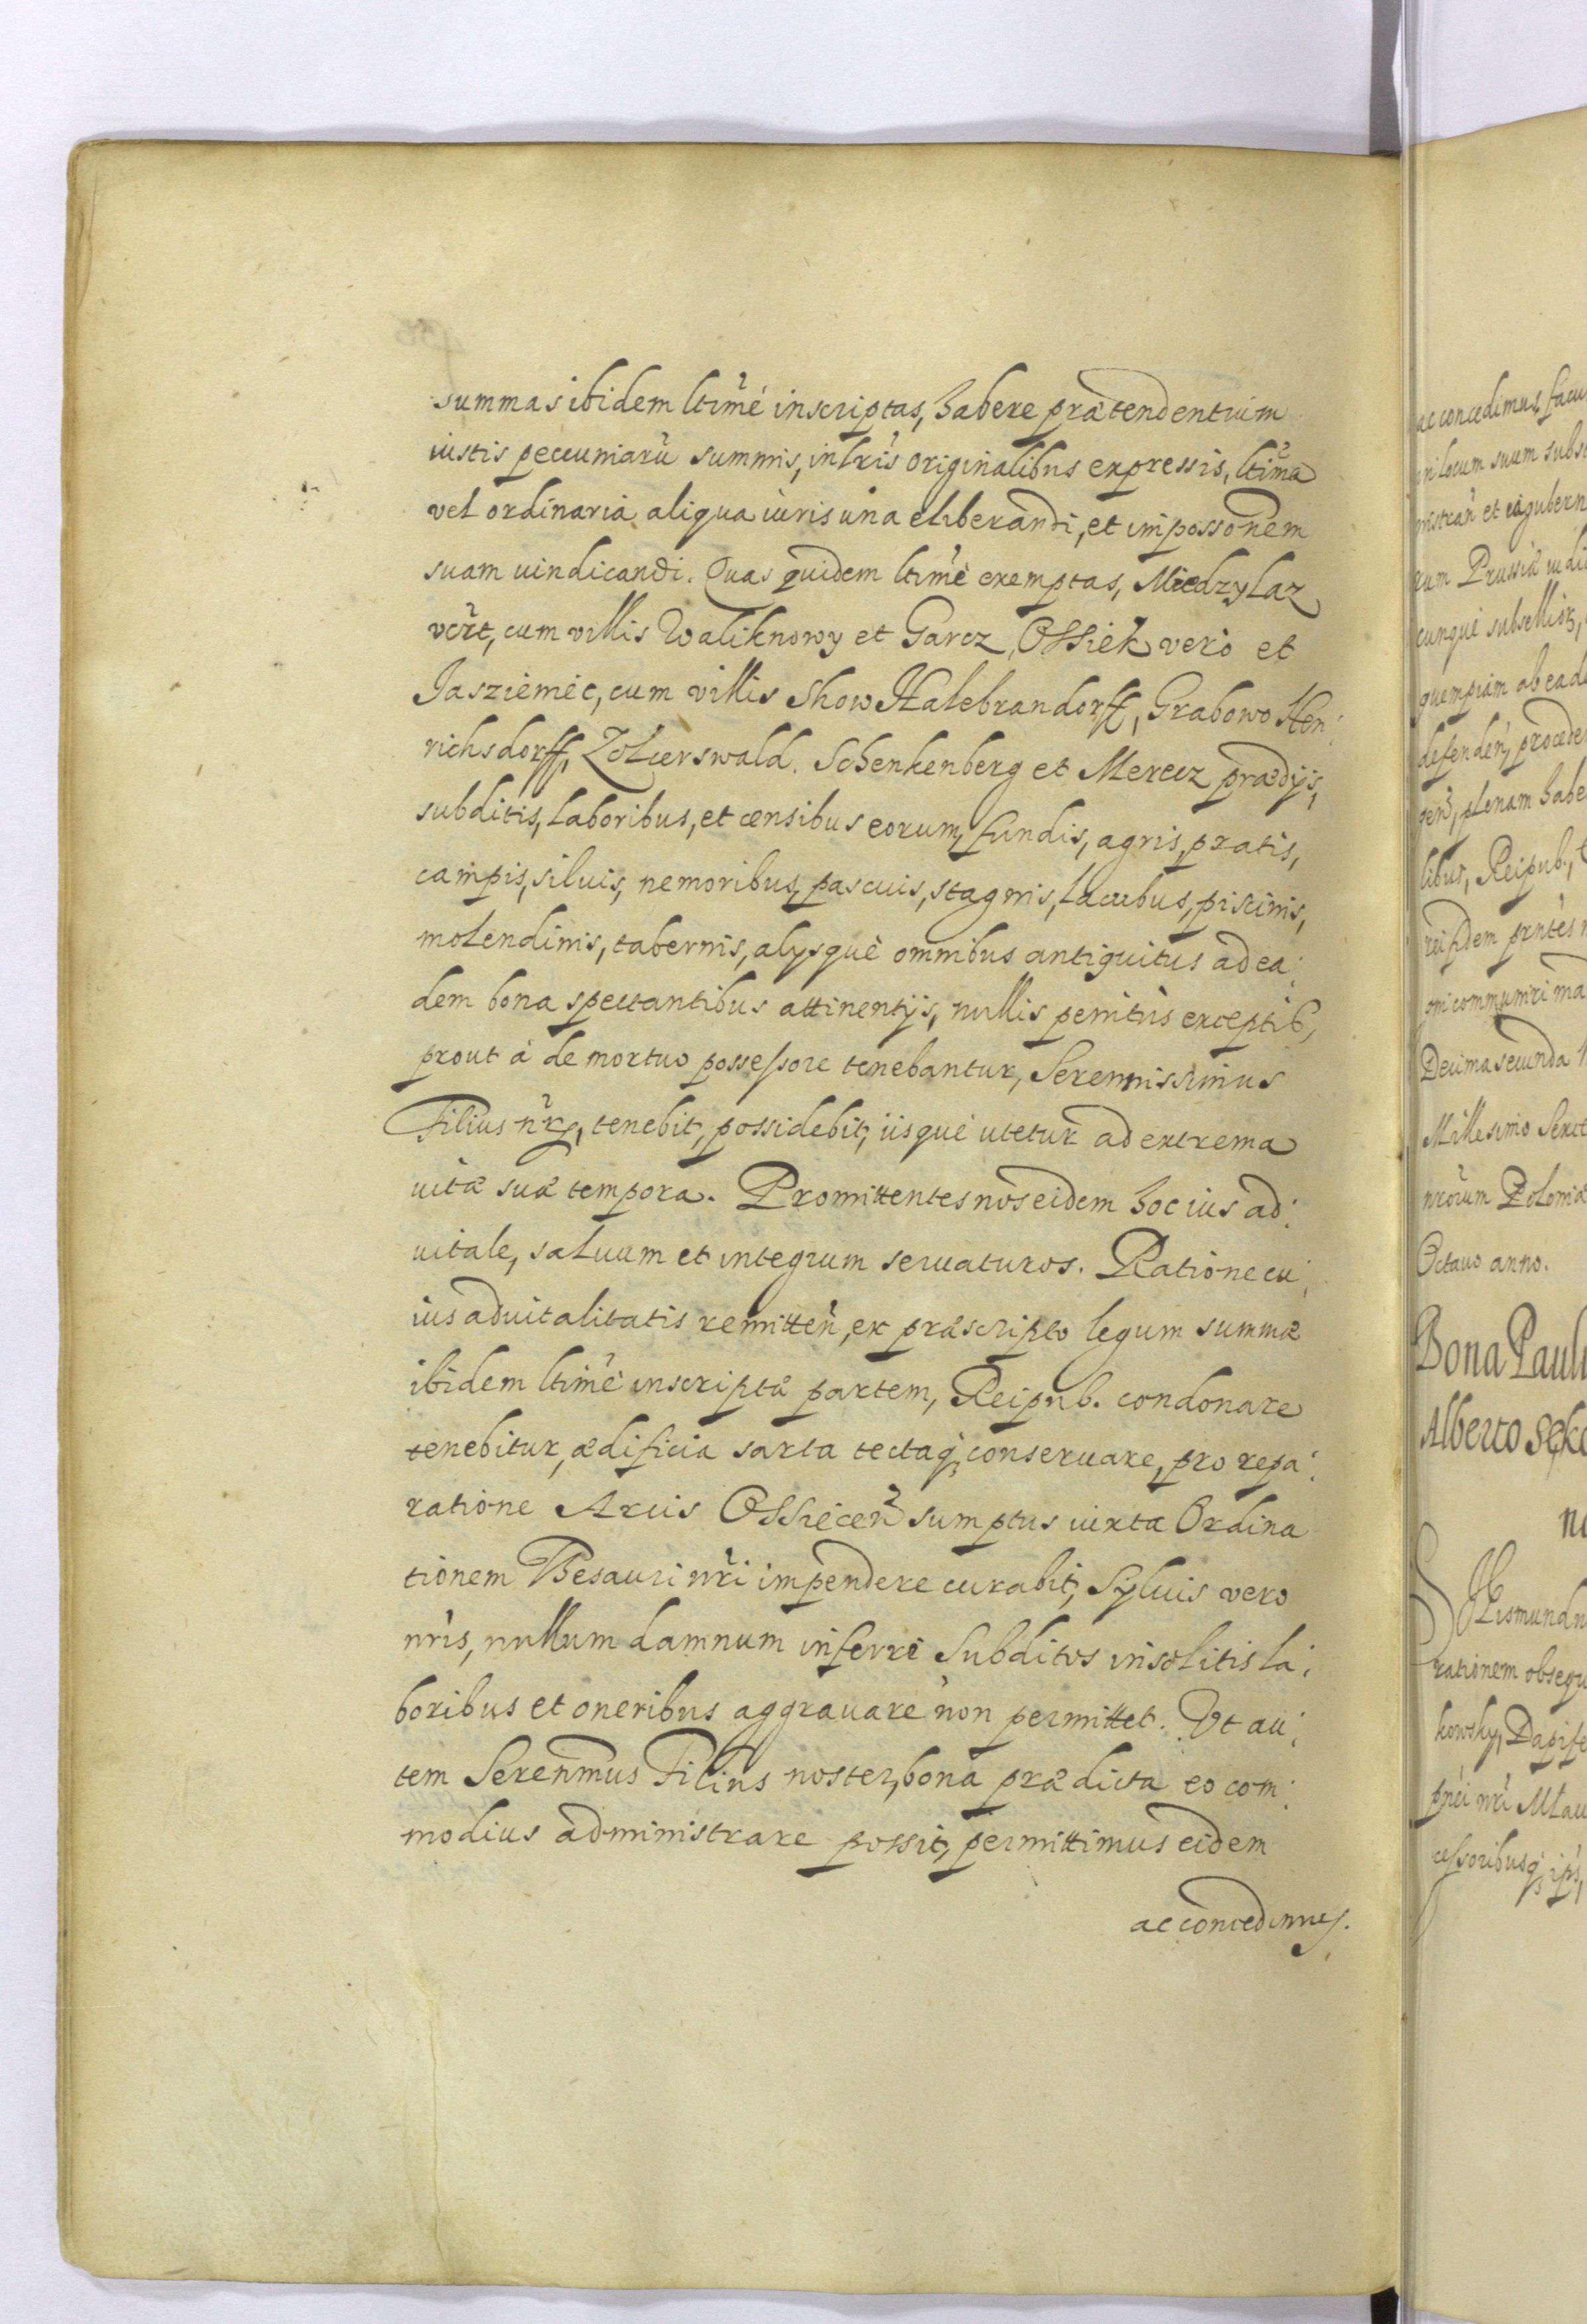 summas ibidem ltimè inscriptas, habere prætendentium
iustis pecuniarũ summis, in lris originalibus expressis, ltima
vel ordinaria aliqua iuris uina eliberandi, et in possonem
suam uindicandi. Quas quidem ltimè exemptas, Miedzylaz
vert, cum villis Waliknowy et Garcz, Ossiek verò et
Jaszièmièc, cum villis Skow Halebrandorff, Grabowo Hen:
richsdorff, Zolcerswald. Schenkenberg et Merecz prædijs,
subditis, laboribus, et censibus eorum, fundis, agris, pratis,
campis, siluis, nemoribus, pascuis, stagnis, lacubus, piscinis,
molendinis, tabernis, alijsquè omnibus antiquitus ad ea:
dem bona spectantibus attinentijs, nullis penitùs exceptis,
prout à demortuo possessore tenebantur, Serennissimus
Filius nr, tenebit, possidebit, iisquè utetur ad extrema
uitæ suæ tempora. Promittentes nos eidem hoc ius ad:
uitale, saluum et integrum seruaturos. Ratione cu:
ius aduitalitatis remitten, ex præscripto legum summæ
ibidem ltimè inscriptæ partem, Reipub. condonare
tenebitur, ædificia sarta tectaq; conseruare, pro repa:
ratione Arcis Ossiecen sumptus iuxta Ordina
tionem Thesauri nri impendere curabit, Syluis vero
nris, nullum damnum inferri Subditos insolitis la:
boribus et oneribus aggrauare non permittet. Vt au:
tem Serenmus Filius noster, bona prædicta eo com:
modius administrare possit, permittimus eidem
ac concedimus.
ac concedimus facu
in locum suum subs
nistran et ea gubern
rum Prussiæ iudi
cunquè subsellior,
quempiam ab eade
defenden, procede
gen, plenam habe
libus, Reipub.,
Decima secunda
Millesimo Sexc
nrorum Poloniæ
Octauo anno.
Bona Pauli
Alberto Seko
Sigismundu
rationem obsequ
kowsky, Dapife
cessoribusq; ips,